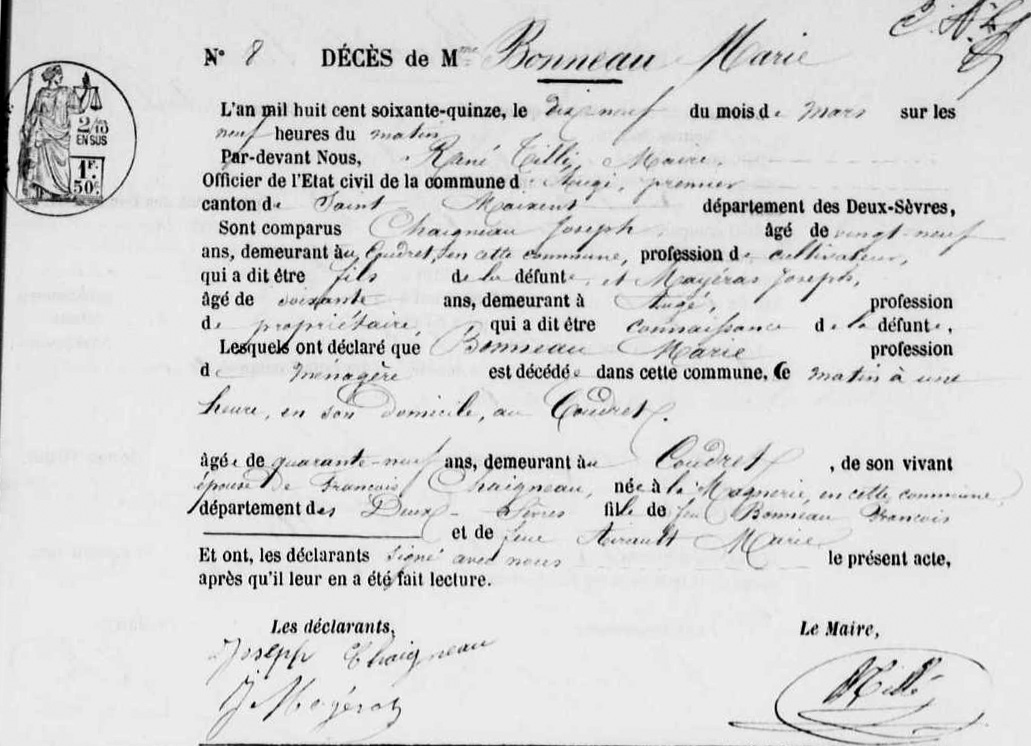 N° 8 DÉCÈS de Mme Bonneau Marie
2/10
EN SUS
1F.
50c.
L'an mil huit cent soixante-quinze, le dix neuf du mois de mars sur les
neuf heures du matin
Par-devant Nous, René Maire
Officier de l'Etat civil de la commune d' Augé, premier
canton de Saint Maixent département des Deux-Sèvres,
Sont comparus Chaigneau Joseph âgé de vingt-neuf
ans, demeurant au Coudret, en cette commune, profession de cultivateur,
qui a dit être fils de la défunte, et Mayéras Joseph,
âgé de soixante ans, demeurant à Augé, profession
de propriétaire, qui a dit être connaissance de la défunte,
Lesquels ont déclaré que Bonneau Marie profession
de ménagère est décédée dans cette commune, ce matin à une
heure, en son domicile, au Coudret.
âgée de quarante-neuf ans, demeurant au Coudret, de son vivant
épouse de François Chaigneau, née à la Magnerie, en cette commune
département des Deux-Sèvres fille de feu Bonneau François
et de feue Airault Marie
Et ont, les déclarants signé avec nous le présent acte,
après qu'il leur en a été fait lecture.
Les déclarants, Le Maire,
Joseph Chaigneau
J Mayéras